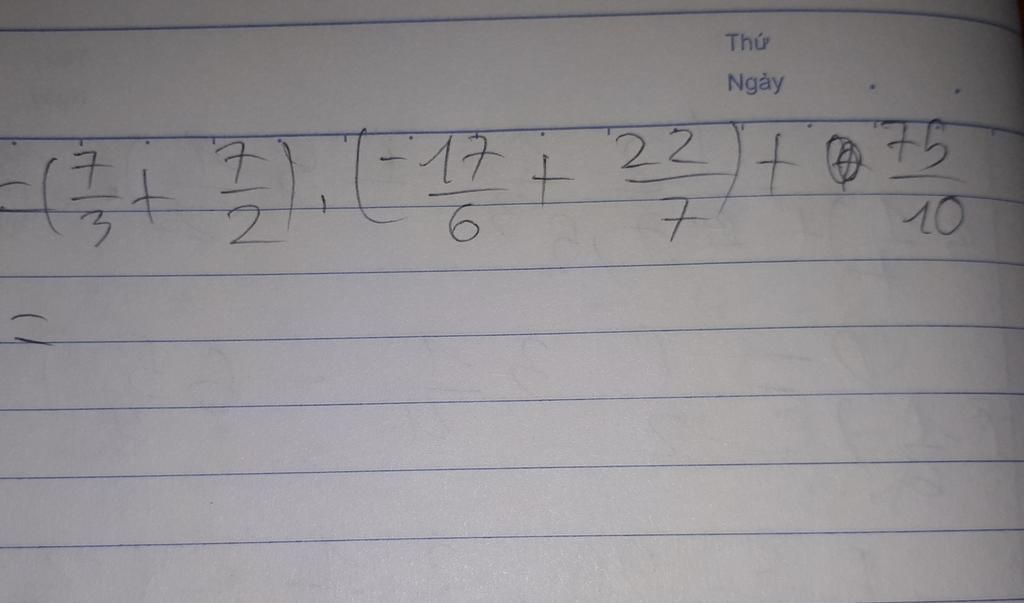 Thứ
Ngày
= (7/3 + 7/2) . (-17/6 + 22/7) + 75/10
=